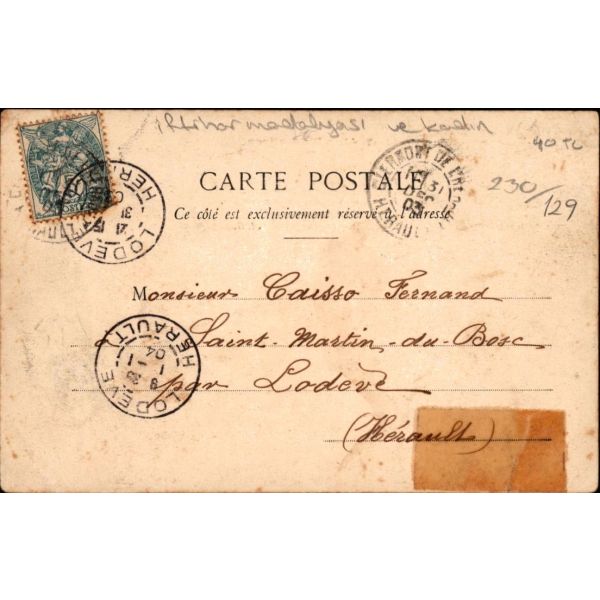 iftihar madalyası ve kadın
40 TL
230/129
CARTE POSTALE
Ce côté est exclusivement réservé à l'adresse
CLERMONT DE L'HERAULT
31 DEC 03
HERAULT
LODEVE
HERAULT
21 31
Monsieur Caisso Fernand
à Saint-Martin-du-Bosc
par Lodève
(Hérault)
LODEVE
(HERAULT)
8
1 - 1
04